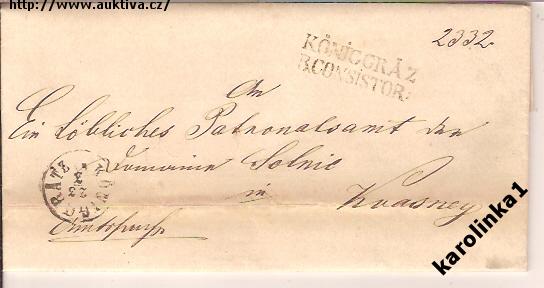 http://www.auktiva.cz/
2332
KÖNIGGRÄZ
B.CONSISTOR:
An
Ein Löbliches Patronatsamt der
Domaine Solnic
in
Kwasney
KÖNIGGRATZ
Amtssache
karolinka1